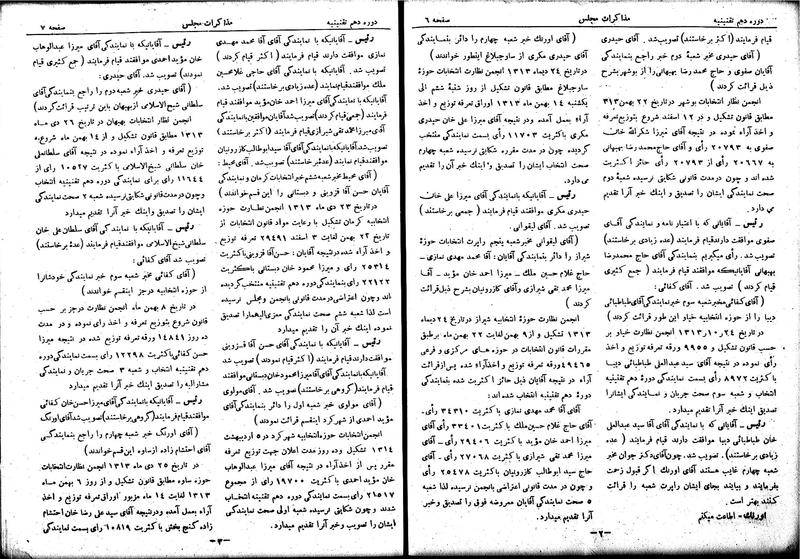 صفحه ۶ مذاکرات مجلس دوره دهم تقنینیه
قیام فرمایند (اکثر برخاستند) تصویب شد. آقای حیدری
(آقای حیدری مخبر شعبهٔ دوم خبر راجع بنمایندگی
آقایان صفوی و حاج محمد رضا بهبهانی را از بوشهر بشرح
ذیل قرائت کردند)
انجمن نظار انتخابات بوشهر ۲۲ بهمن ۳۱۳
مطابق قانون تشکیل و در ۱۲ اسفند شروع بتوزیع تعرفه
و اخذ آراء نموده در نتیجه آقای میرزا شکرالله خان
صفوی به ۲۰۷۹۳ رأی و آقای حاج محمد رضا بهبهانی
به ۲۰۶۶۷ رأی از ۲۰۷۹۳ رأی حائز اکثریت
شده اند و چون در مدت قانونی شکایتی نرسیده شعبهٔ دوم
صحت نمایندگی ایشان را تصدیق و اینك خبر آن را تقدیم
می دارد.
رئیس ـ آقایانی که با اعتبار نامه و نمایندگی آقای
صفوی موافقت دارند قیام فرمایند (عده زیادی برخاستند)
تصویب شد. رأی میگیریم بنمایندگی آقای حاج محمد رضا
بهبهانی آقایانیکه موافقند قیام فرمایند (جمع کثیری
قیام کردند) تصویب شد. آقای کفائی:
(آقای کفائی مخبر شعبه سوم خبر نمایندگی آقای طباطبائی
دیبا را از حوزه انتخابیه خیار این طور قرائت کردند)
در تاریخ ۲۴ر۱۰ر۱۳۱۳ انجمن نظارت خیار بر
حسب قانون تشکیل و ۹۹۵۵ ورقه تعرفه توزیع و اخذ
رأی نموده در نتیجه آقای سید عبدالعلی طباطبائی دیبا
با کثریت ۸۹۷۲ رأی بسمت نمایندگی دورهٔ دهم تقنینیه
انتخاب و شعبه سوم صحت جریان و نمایندگی ایشان را
تصدیق اینك خبر آنرا تقدیم میدارد.
رئیس ـ آقایانی که با نمایندگی آقای سید عبدالعلی
خان طباطبائی دیبا موافقت دارند قیام فرمایند (عده
زیادی برخاستند). تصویب شد. چون آقای دکتر جوان مخبر
شعبه چهارم غایب هستند آقای اورنك اگر قبول زحمت
بفرمایند و بیایند بجای ایشان راپرت شعبه را قرائت
کنند بهتر است.
اورنك ـ اطاعت میکنم
(آقای اورنك خبر شعبه چهارم را دائر بنمایندگی
آقای حیدری مکری از ساوجبلاغ اینطور خواندند)
در تاریخ ۲۴ دیماه ۱۳۱۳ انجمن نظارت حوزهٔ
ساوجبلاغ مطابق قانون تشکیل از روز شنبهٔ ششم الی
یکشنبه ۱۴ بهمن ماه ۱۳۱۳ اوراق تعرفه توزیع و اخذ
آراء بعمل آمده و در نتیجه آقای میرزا علی خان حیدری
مکری با کثریت ۱۱۷۰۳ رأی بسمت نمایندگی منتخب
گردیده چون در مدت مقرره شکایتی نرسیده شعبه چهارم
صحت انتخاب ایشان را تصدیق و اینك خبر آن را تقدیم
می دارد.
رئیس ـ آقایانیکه با نمایندگی آقای میرزا علی خان
حیدری مکری موافقند قیام فرمایند (جمعی برخاستند)
تصویب شد. آقای لیقوانی.
(آقای لیقوانی مخبر شعبه پنجم راپرت انتخابات حوزهٔ
شیراز را دائر بنمایندگی آقایان: آقا محمد مهدی نمازی ـ
حاج غلام حسین ملك ـ میرزا احمد خان مؤید ـ آقا
میرزا محمد تقی شیرازی و آقای کازرونیان بشرح ذیل قرائت
کردند)
انجمن نظارت انتخابیه شیراز در تاریخ ۲۴ دیماه
۱۳۱۳ تشکیل و از ۹ بهمن لغایت ۲۲ بهماه برطبق
مقررات قانون انتخابات در حوزه های مرکزی و فرعی
۴۹۶۶۵ ورقه تعرفه توزیع و اخذ آراء شده پس از قرائت
آراء در نتیجه آقایان ذیل حائز اکثریت شده بنمایندگی
دورهٔ دهم تقنینیه انتخاب شده اند:
آقای آقا محمد مهدی نمازی با کثریت ۳۴۳۱۰ رأی-
آقای حاج غلام حسین ملك با کثریت ۳۳۴۰۱ رأی آقای
میرزا احمد خان مؤید با کثریت ۲۹۴۰۶ رأی ـ آقای
میرزا محمد تقی شیرازی با کثریت ۲۷۰۶۸ رأی ـ آقای
حاج سید ابوطالب کازرونیان با کثریت ۲۵۴۷۸ رأی
و چون در مدت قانونی اعتراضی بانجمن نرسیده لذا شعبه
۵ صحت نمایندگی آقایان معروضه فوق را تصدیق و خبر
آنرا تقدیم میدارد.
ـ۲ـ
صفحه ۷ مذاکرات مجلس دوره دهم تقنینیه
رئیس ـ آقایانیکه با نمایندگی آقای آقا محمد مهدی
نمازی موافقت دارند قیام فرمایند (اکثر قیام کردند)
تصویب شد. آقایانیکه با نمایندگی آقای حاجی غلامحسین
ملك موافقند قیام نمایند (عده زیادی برخاستند) تصویب شد.
آقایانیکه با نمایندگی آقای میرزا احمد خان مؤید موافقند قیام
فرمایند (جمعی قیام کردند) تصویب شد آقایان موافقین با نمایندگی
آقای میرزا محمد تقی شیرازی قیام فرمایند (اکثر برخاستند)
تصویب شد آقایانیکه با نمایندگی آقای آقا سید ابوطالب کازرونیان
موافقند قیام نمایند (عدهٔ برخاستند) تصویب شد. آقای محیط:
(آقای محیط مخبر شعبه ششم خبر انتخابات کرمان و نمایندگی
آقایان حسن آقا قزوینی و دبستانی را این قسم خواندند)
در تاریخ ۲۳ دی ماه ۱۳۱۳ انجمن نظارت حوزه
انتخابیه کرمان تشکیل با رعایت مواد قانون انتخابات از
تاریخ ۲۲ بهمن لغایت ۳ اسفند ۲۹۴۹۱ تعرفه توزیع
و اخذ آراء شده در نتیجه آقایان: حسن آقا قزوینی با کثریت
۲۵۳۱۴ رأی و میرزا محمود خان دبستانی با کثریت
۲۲۱۲۲ رأی بنمایندگی دوره دهم تقنینیه منتخب گردیده
اند و چون اعتراضی در مدت قانونی بانجمن و مجلس نرسیده
است لذا شعبه ششم صحت نمایندگی معزی الیهما را تصدیق
نموده اینك خبر آن را تقدیم میدارد
رئیس ـ آقایانیکه با نمایندگی آقای حسن آقا قزوینی
موافقت دارند قیام فرمایند (اکثر قیام نمودند) تصویب شد
آقایانیکه با نمایندگی آقای میرزا محمود خان دبستانی موافقند
قیام فرمایند (گروهی برخاستند) تصویب شد. آقای مولوی
(آقای مولوی خبر شعبه اول را دائر بنمایندگی آقای
مؤید احمدی از شهر کرد اینقسم قرائت نمودند)
انجمن انتخابات حوزه انتخابیه شهر کرد در ۵ اردیبهشت
۱۳۱۴ تشکیل و ده روز مدت اعلان جهت توزیع تعرفه
مقرر پس از اخذ آراء در نتیجه آقای میرزا عبدالوهاب
خان مؤید احمدی با کثریت ۱۹۷۰۰ رأی از مجموع
۲۱۵۱۷ رأی بسمت نمایندگی دوره دهم تقنینیه انتخاب
شدند و چون شکایتی نرسیده شعبه اولی صحت نمایندگی
ایشان را تصویب و خبر آنرا تقدیم میدارد.
رئیس ـ آقایانیکه با نمایندگی آقای میرزا عبدالوهاب
خان مؤید احمدی موافقند قیام فرمایند (جمع کثیری قیام
نمودند) تصویب شد. آقای حیدری:
(آقای حیدری خبر شعبه دوم را راجع بنمایندگی آقای
سلطانی شیخ الاسلامی از بهبهان باین ترتیب قرائت کردند)
انجمن نظار انتخابات بهبهان در تاریخ ۲۱ دی ماه
۱۳۱۳ مطابق قانون تشکیل و از ۱۴ بهمن ماه شروع به
توزیع تعرفه و اخذ آراء نموده در نتیجه آقای سلطانعلی
خان سلطانی شیخ الاسلامی با کثریت ۱۰۵۲۷ رای از
۱۱۶۴۴ رای برای نمایندگی دوره دهم تقنینیه انتخاب
و چون در مدت قانونی شکایتی نرسیده شعبه ۲ صحت نمایندگی
ایشان را تصدیق و اینك خبر آنرا تقدیم میدارد
رئیس ـ آقایانیکه با نمایندگی آقای سلطان علی خان
سلطانی شیخ الاسلامی موافقند قیام فرمایند (عدهٔ برخاستند)
تصویب شد آقای کفائی:
(آقای کفائی مخبر شعبه سوم خبر نمایندگی خودشان را
از حوزه انتخابیه درجز اینقسم خواندند)
در تاریخ ۸ بهمن ماه انجمن نظارت درجز بر حسب
قانون شروع بتوزیع تعرفه و اخذ رأی نموده و در مدت
ده روز ۱۴۸۴۱ ورقه تعرفه توزیع شده در نتیجه میرزا
حسن کفائی با کثریت ۱۲۲۹۸ رأی بسمت نمایندگی دوره
دهم تقنینیه انتخاب و شعبه ۳ صحت جریان و نمایندگی
مشارالیه را تصدیق اینك خبر آنرا تقدیم میدارد
رئیس ـ آقایانیکه با نمایندگی آقای میرزا حسن خان کفائی
موافقند قیام فرمایند (گروهی برخاستند) تصویب شد آقای اورنك
(آقای اورنك خبر شعبه چهارم را راجع بنمایندگی
آقای احتشام زاده از ساوه این قسم خواندند)
در تاریخ ۲۵ دی ماه ۱۳۱۳ انجمن نظارت انتخابات
حوزه ساوه مطابق قانون تشکیل و از روز ۶ بهمن ماه
۱۳۱۳ لغایت ۱۴ ماه مزبور اوراق تعرفه توزیع و اخذ
آراء بعمل آمده و در نتیجه آقای سید علی رضا خان احتشام
زاده گنج بخش با کثریت ۱۰۸۱۹ رأی بسمت نمایندگی
ـ۳ـ